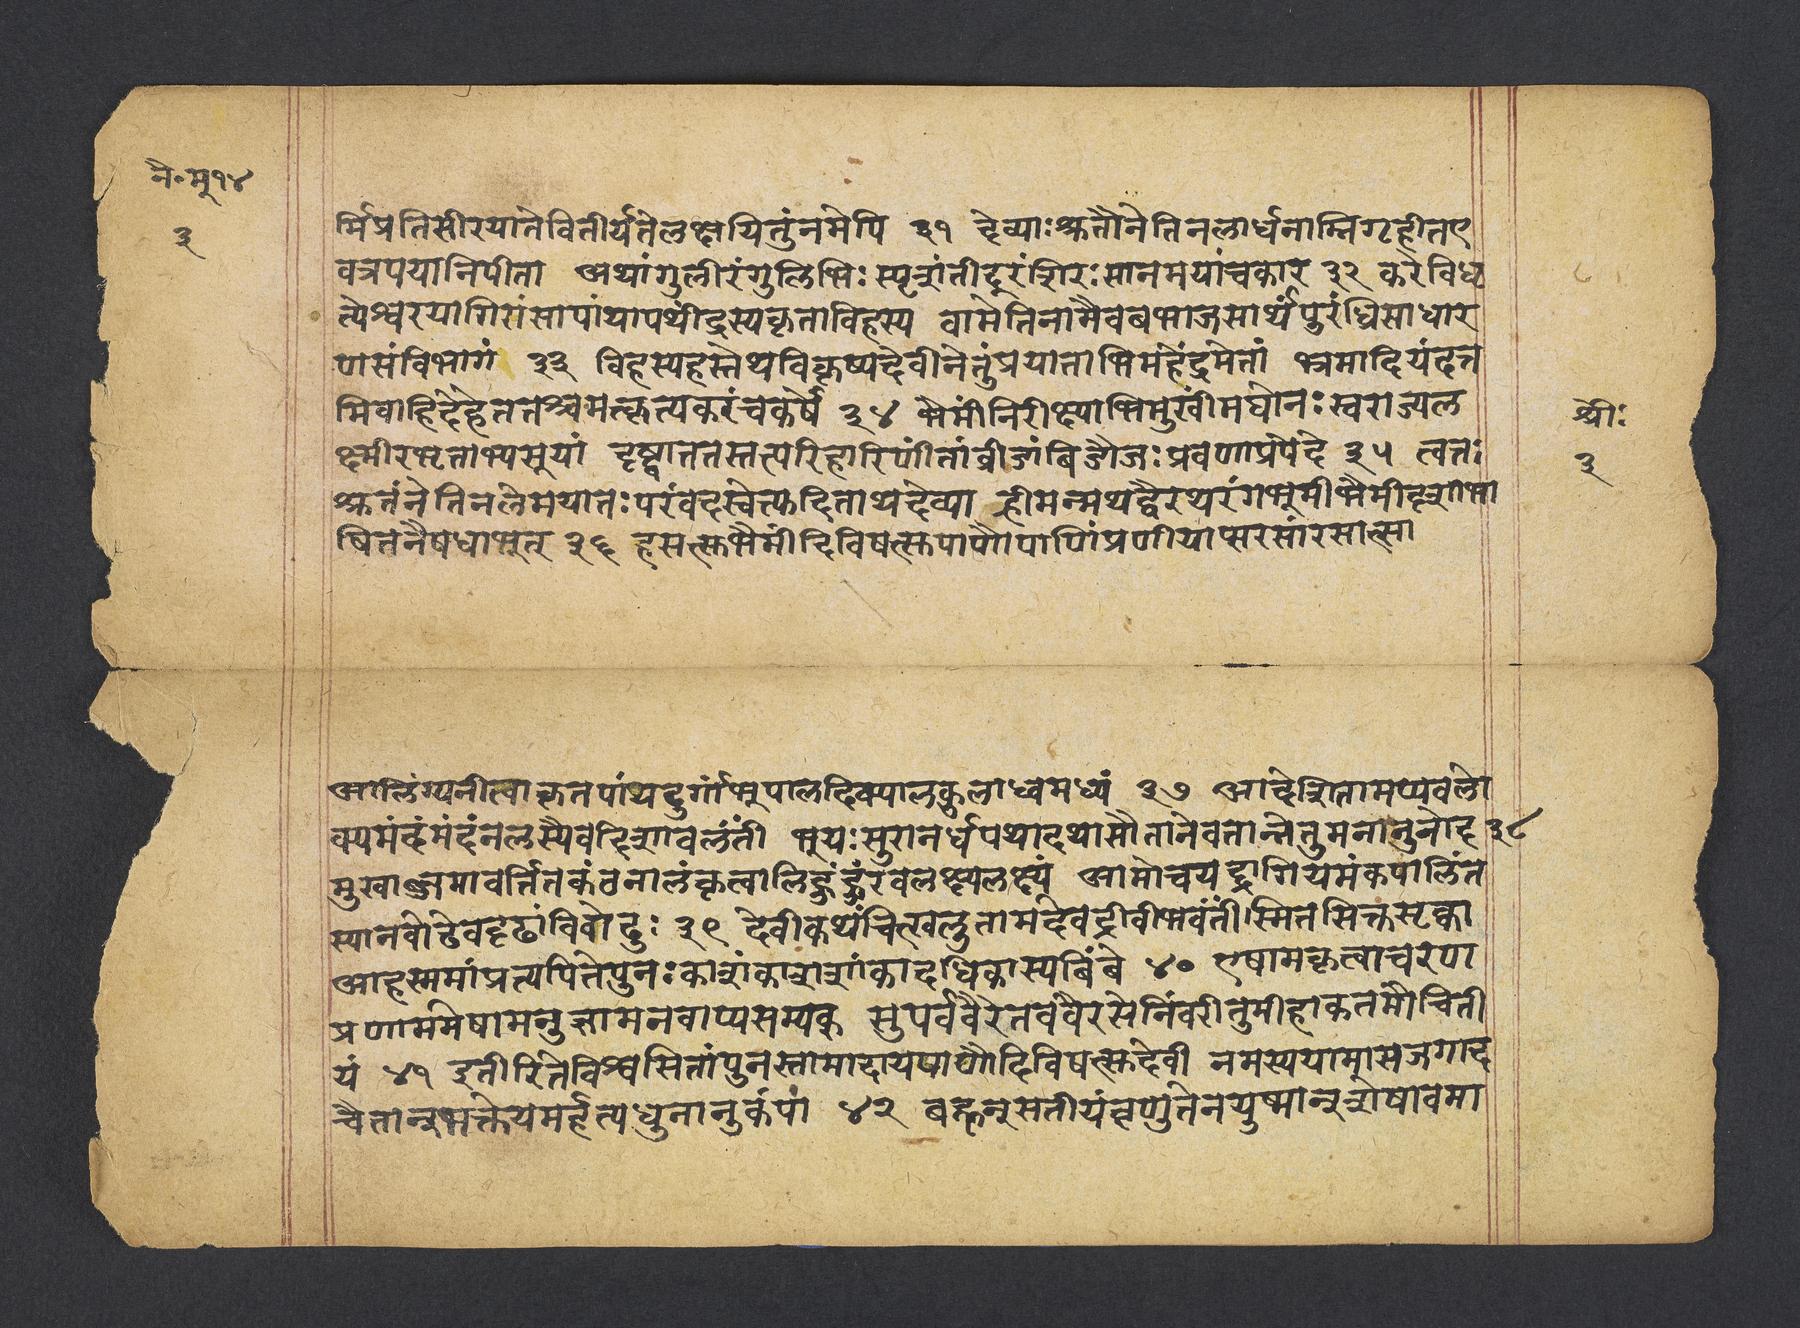 नै॰मू१४
३
र्मिप्रतिसीरयातेवितीर्यतेलक्षयितुंनमेपि ३१ देव्याःश्रुतौनेतिनलार्धनाम्निगृहीतए
वत्रपयानिपीता अथांगुलीरंगुलिभिः स्पृशंतीदूरंशिरःसानमयांचकार ३२ करेविधृ
त्येश्वरयागिरांसापांथापथींद्रस्यकृताविहस्य वामेतिनामैवबभाजसार्थंपुरंध्रिसाधार
णसंविभागं ३३ विहस्यहस्तेथविकृष्यदेवीनेतुंप्रयाताभिमहेंद्रमेतां भ्रमादियंदत्त
मिवाहिदेहेततश्चमत्कृत्यकरंचकर्ष ३४ भैमींनिरीक्ष्याभिमुखींमघोनः स्वराज्यल
क्ष्मीरभृताभ्यसूयां दृष्ट्वाततस्तत्परिहारिणींतांव्रीडांबिडौजःप्रवणाप्रपेदे ३५ त्वत्तः
श्रुतंनेतिनलेमयातःपरंवदस्वेत्युदिताथदेव्या ह्रीमन्मथद्वैरथरंगभूमीभैमीदृशाभा
षितनैषधाभूत् ३६ हसत्सुभैमींदिविषत्सुपाणौपाणिंप्रणीयाप्सरसांरसात्सा
श्रीः
३
आलिंग्यनीत्वाकृतपांथदुर्गांभूपालदिक्पालकुलाध्वमध्यं ३७ आदेशितामप्यवलो
क्यमंदंमंदंनलस्यैवदिशावलंतीं भूयःसुरानर्धपथादथासौतानेवतान्नेतुमनानुनोद ३८
मुखाब्जमावर्त्तितकंठनालंकृत्वालिहूंहूंरवलक्ष्यलक्ष्यं आमोचयद्द्रागियमंकपालिंत
स्यानवोढेवदृढांविवोढुः ३९ देवीकथंचित्खलुतामदेवद्रीचींभवंतीं स्मितसिक्तसृक्का
आहस्ममांप्रत्यपितेपुनःकाशंकाशशांकादधिकास्यबिंबे ४० एषामकृत्वाचरण
प्रणाममेषामनुज्ञामनवाप्यसम्यक् सुपर्ववैरेतववैरसेनिंवरीतुमीहाकतमौचिती
यं ४१ इतीरितेविश्वसितांपुनस्तामादायपाणौदिविषत्सुदेवी नमस्ययामासजगाद
चैतान्भक्तेयमर्हत्यधुनानुकंपां ४२ बहून्सतीयंवृणुतेनयुष्मान्शेषावमा